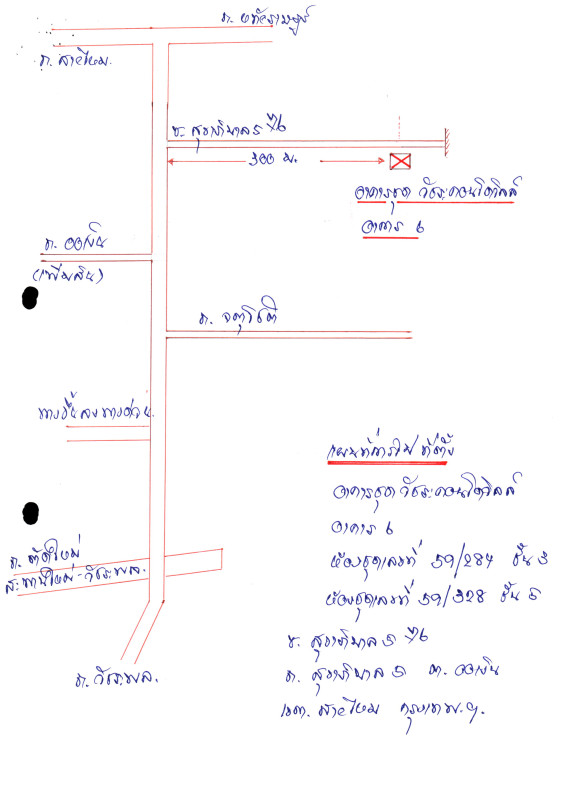 ถ. สายไหม
ซ. สุขาภิบาล 5
300 ม.
อาคารชุด วัชระคอนโดวิลล์
อาคาร 6
ถ. ออเงิน
(เพิ่มสิน)
ถ. จตุโชติ
ทางขึ้นลงทางด่วน
แผนที่การไป ที่ตั้ง
อาคารชุด วัชระคอนโดวิลล์
อาคาร 6
ห้องชุดเลขที่ 59/284 ชั้น 3
ห้องชุดเลขที่ 59/328 ชั้น 5
ถ. ตัดใหม่
สะพานใหม่-วัชรพล
ซ. สุขาภิบาล 5
ถ. สุขาภิบาล 5 ต. ออเงิน
ถ. วัชรพล
เขต สายไหม กรุงเทพฯ